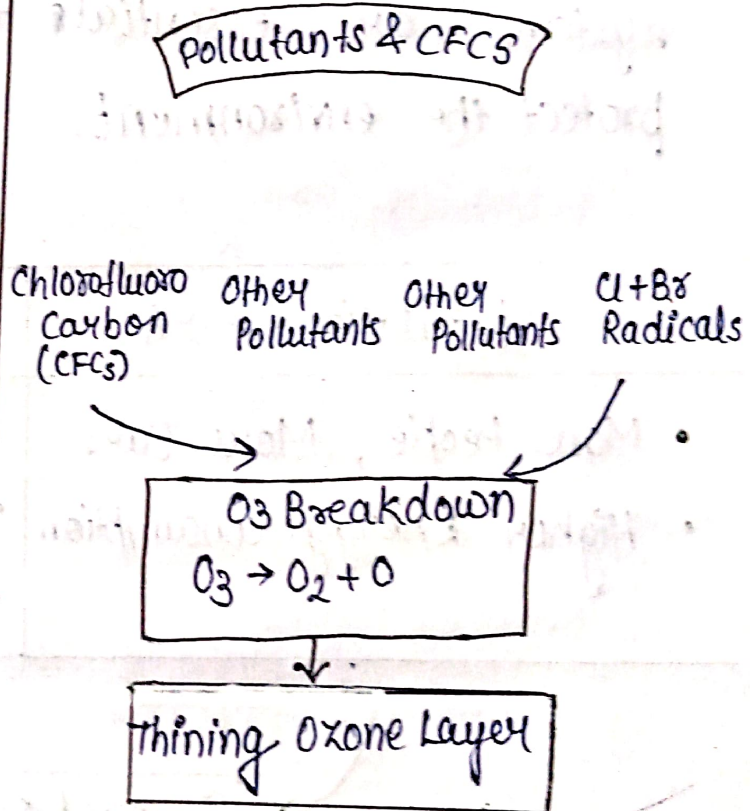 Pollutants & CFCS
Chlorofluoro
Carbon
(CFCs)
Other
Pollutants
Other
Pollutants
Cl+Br
Radicals
O3 Breakdown
O3 → O2 + O
Thining Ozone Layer